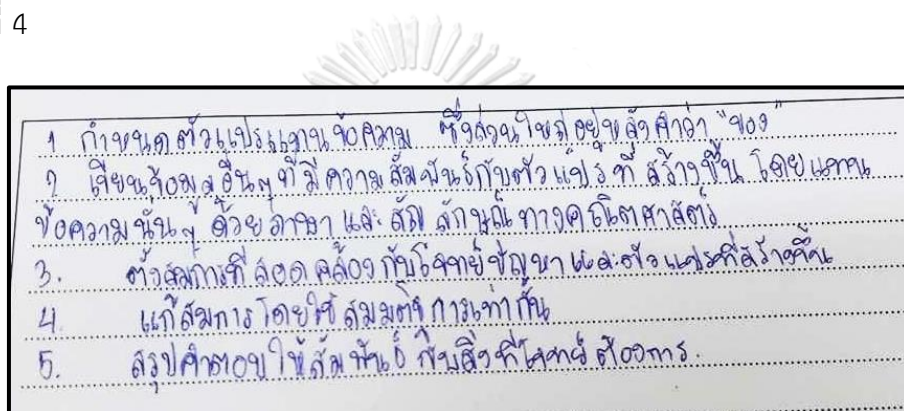 4
1 กำหนดตัวแปรแทนข้อความ ซึ่งส่วนใหญ่อยู่หลังคำว่า "ของ"
2 เขียนข้อมูลอื่นๆ ที่มีความสัมพันธ์กับตัวแปรที่ สร้างขึ้น โดยแทน
ข้อความนั้นๆ ด้วยภาษา และ สัญลักษณ์ทางคณิตศาสตร์
3. ตั้งสมการที่สอดคล้องกับโจทย์ปัญหาและตัวแปรที่สร้างขึ้น
4. แก้สมการโดยใช้สมบัติการเท่ากัน
5. สรุปคำตอบให้สัมพันธ์กับสิ่งที่โจทย์ต้องการ.